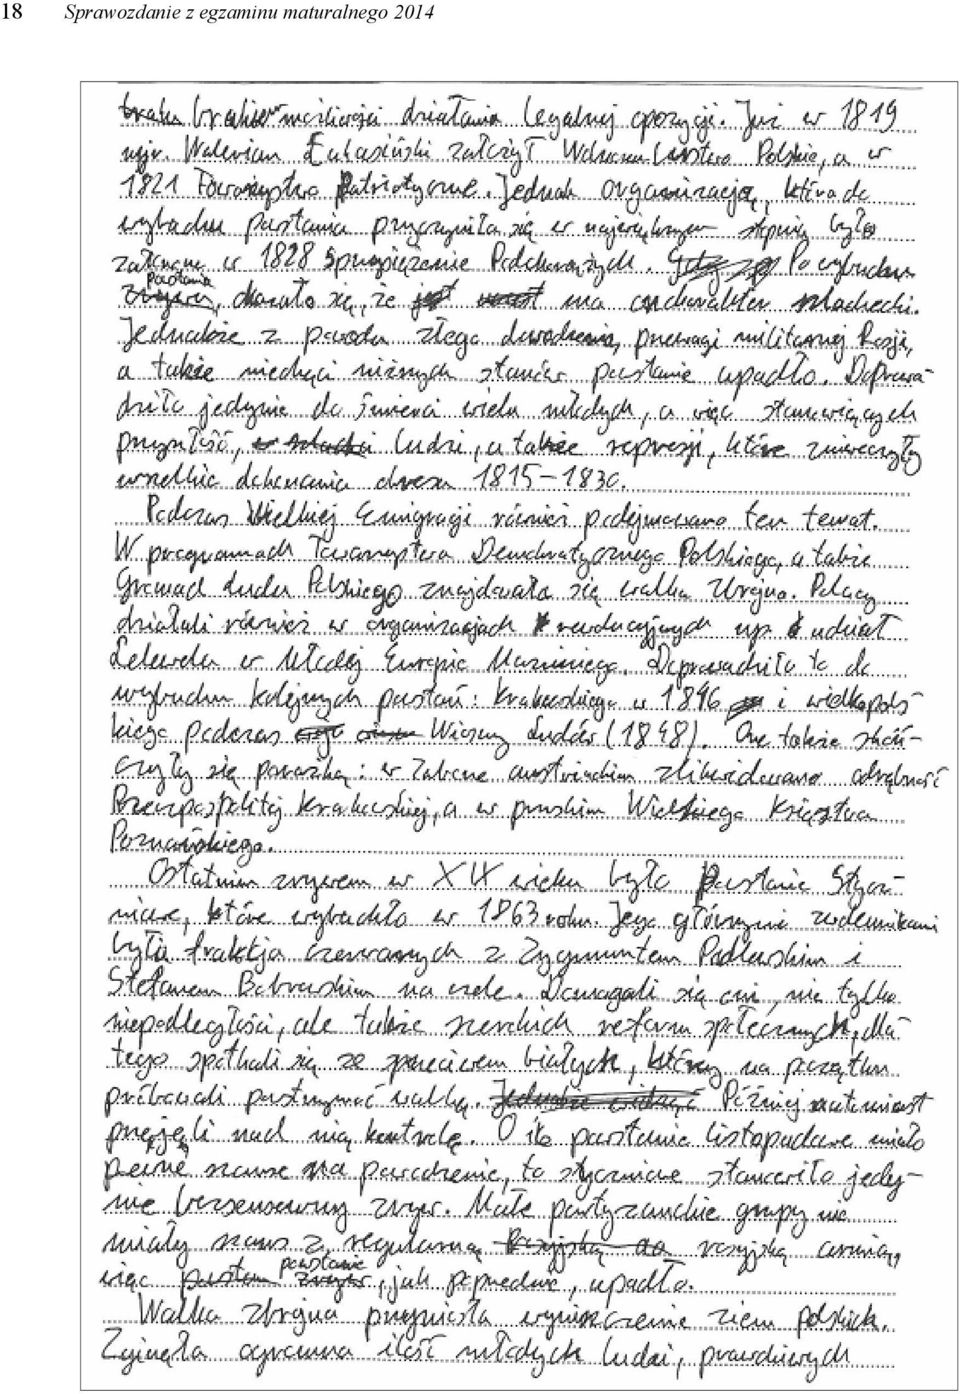 18 Sprawozdanie z egzaminu maturalnego 2014
braku możliwości działania legalnej opozycji. Już w 1819
mjr. Walerian Łukasiński założył Wolnomularstwo Polskie, a w
1821 Towarzystwo Patriotyczne. Jednak organizacją, która do
wybuchu powstania przyczyniła się w największym stopniu było
założone w 1828 Sprzysiężenie Podchorążych. Po wybuchu
powstania, okazało się, że ma on charakter szlachecki.
Jednakże z powodu złego dowodzenia, przewagi militarnej Rosji,
a także niechęci niższych stanów powstanie upadło. Doprowa-
dziło jedynie do śmierci wielu młodych, a więc stanowiących
przyszłość, ludzi, a także represji, które zniweczyły
wszelkie dokonania okresu 1815-1830.
Podczas Wielkiej Emigracji również podejmowano ten temat.
W programach Towarzystwa Demokratycznego Polskiego, a także
Gromad Ludu Polskiego znajdowała się walka zbrojna. Polacy
działali również w organizacjach rewolucyjnych np. udział
Lelewela w Młodej Europie Mazziniego. Doprowadziło to do
wybuchu kolejnych powstań: krakowskiego w 1846 i wielkopols-
kiego podczas Wiosny Ludów (1848). One także skoń-
czyły się porażką: w Zaborze austriackim zlikwidowano odrębność
Rzeczpospolitej Krakowskiej, a w pruskim Wielkiego Księstwa
Poznańskiego.
Ostatnim zrywem w XIX wieku było Powstanie Stycz-
niowe, które wybuchło w 1863 roku. Jego głównymi zwolennikami
była frakcja czerwonych z Zygmuntem Padlewskim i
Stefanem Bobrowskim na czele. Domagali się oni, nie tylko
niepodległości, ale także szerokich reform społecznych, dla-
tego spotkali się ze sprzeciwem białych, którzy na początku
próbowali powstrzymać walkę. Później natomiast
przejęli nad nią kontrolę. O ile powstanie listopadowe miało
pewne szanse na powodzenie, to styczniowe stanowiło jedy-
nie bezsensowny zryw. Małe partyzanckie grupy nie
miały szans z regularną rosyjską armią,
więc powstanie, jak poprzednie, upadło.
Walka zbrojna przyniosła wyniszczenie ziem polskich.
Zginęła ogromna ilość młodych ludzi, prawdziwych